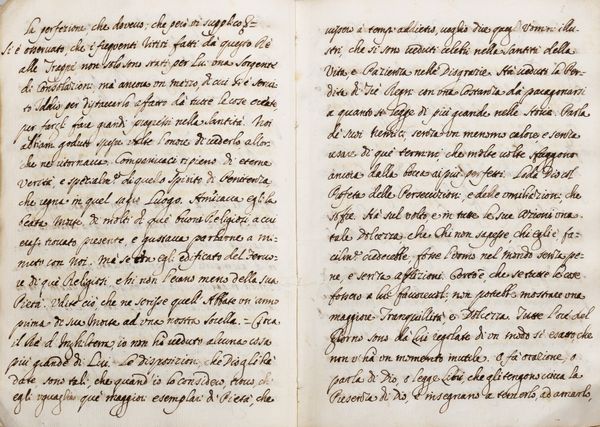 la perfezione che dovevo; che però vi supplico &c.
Si è osservato, che i frequenti Viaggi fatti da questo Rè
alla Trappa non solo sono stati per Lui una Sorgente
di Consolazioni, ma ancora un mezzo, di cui si è servito
Iddio per distaccarlo affatto da tutte le cose create,
per farli fare grandi progressi nella Santità. Noi
abbiam goduto spesse volte l'onore di vederlo allor
che ne ritornava. Compariva ripieno di eterne
verità, e specialm.te di quello Spirito di Penitenza,
che regna in quel sacro Luogo. Ammirava egli la
Beata Morte, di molti di que' buoni Religiosi, a cui
erasi trovato presente, e gustava parlarne a minuto
con Noi. Ma se era egli edificato del Fervore
di que' Religiosi, eglino non l'erano meno della sua
Pietà. Udite ciò che ne scrisse quell'Abbate un'anno
prima di sua Morte ad una nostra Sorella. = Circa
il Rè d'Inghilterra, io non hò veduto alcuna cosa
più grande di Lui. Le disposizioni, che Dio gli hà
date, sono tali, che quand'io lo considero, trovo, ch'
egli uguaglia que' maggiori esemplari di Pietà, che
vissero a' tempi addietro, voglio dire quegl'Uomini illustri,
che si sono veduti celebri nella Santità della
Vita, e Pazienza nelle Disgrazie. Hà veduti la Perdita
di Tré Regni con una Costanza da paragonarsi
a quanto si legge di più grande nelle Storie. Parla
de' suoi Nemici, senza un menomo calore, e senza
usare di que' termini, che molte volte sfuggono
ancora dalla bocca ai più perfetti. Loda Dio al
delle Persecuzioni, e delle umiliazioni, che
soffre. Hà sul volto, e in tutte le sue azzioni una
tale Dolcezza, che chi non sapesse chi egli è, facilm.te
crederebbe, fosse l'Uomo nel mondo senza pene,
e senza afflizioni. Cert'è, che se tutte le cose
fossero a lui favorevoli, non potrebbe mostrare una
maggiore Tranquillità, e Dolcezza. Tutte l'ore del
Giorno sono da Lui regolate di un modo sì esatto, che
non vi hà un momento inutile. O fà orazione, o
parla di Dio, o legge Libri, che gli tengono circa la
Presenza di Dio, e insegnano a temerlo, ad amarlo,